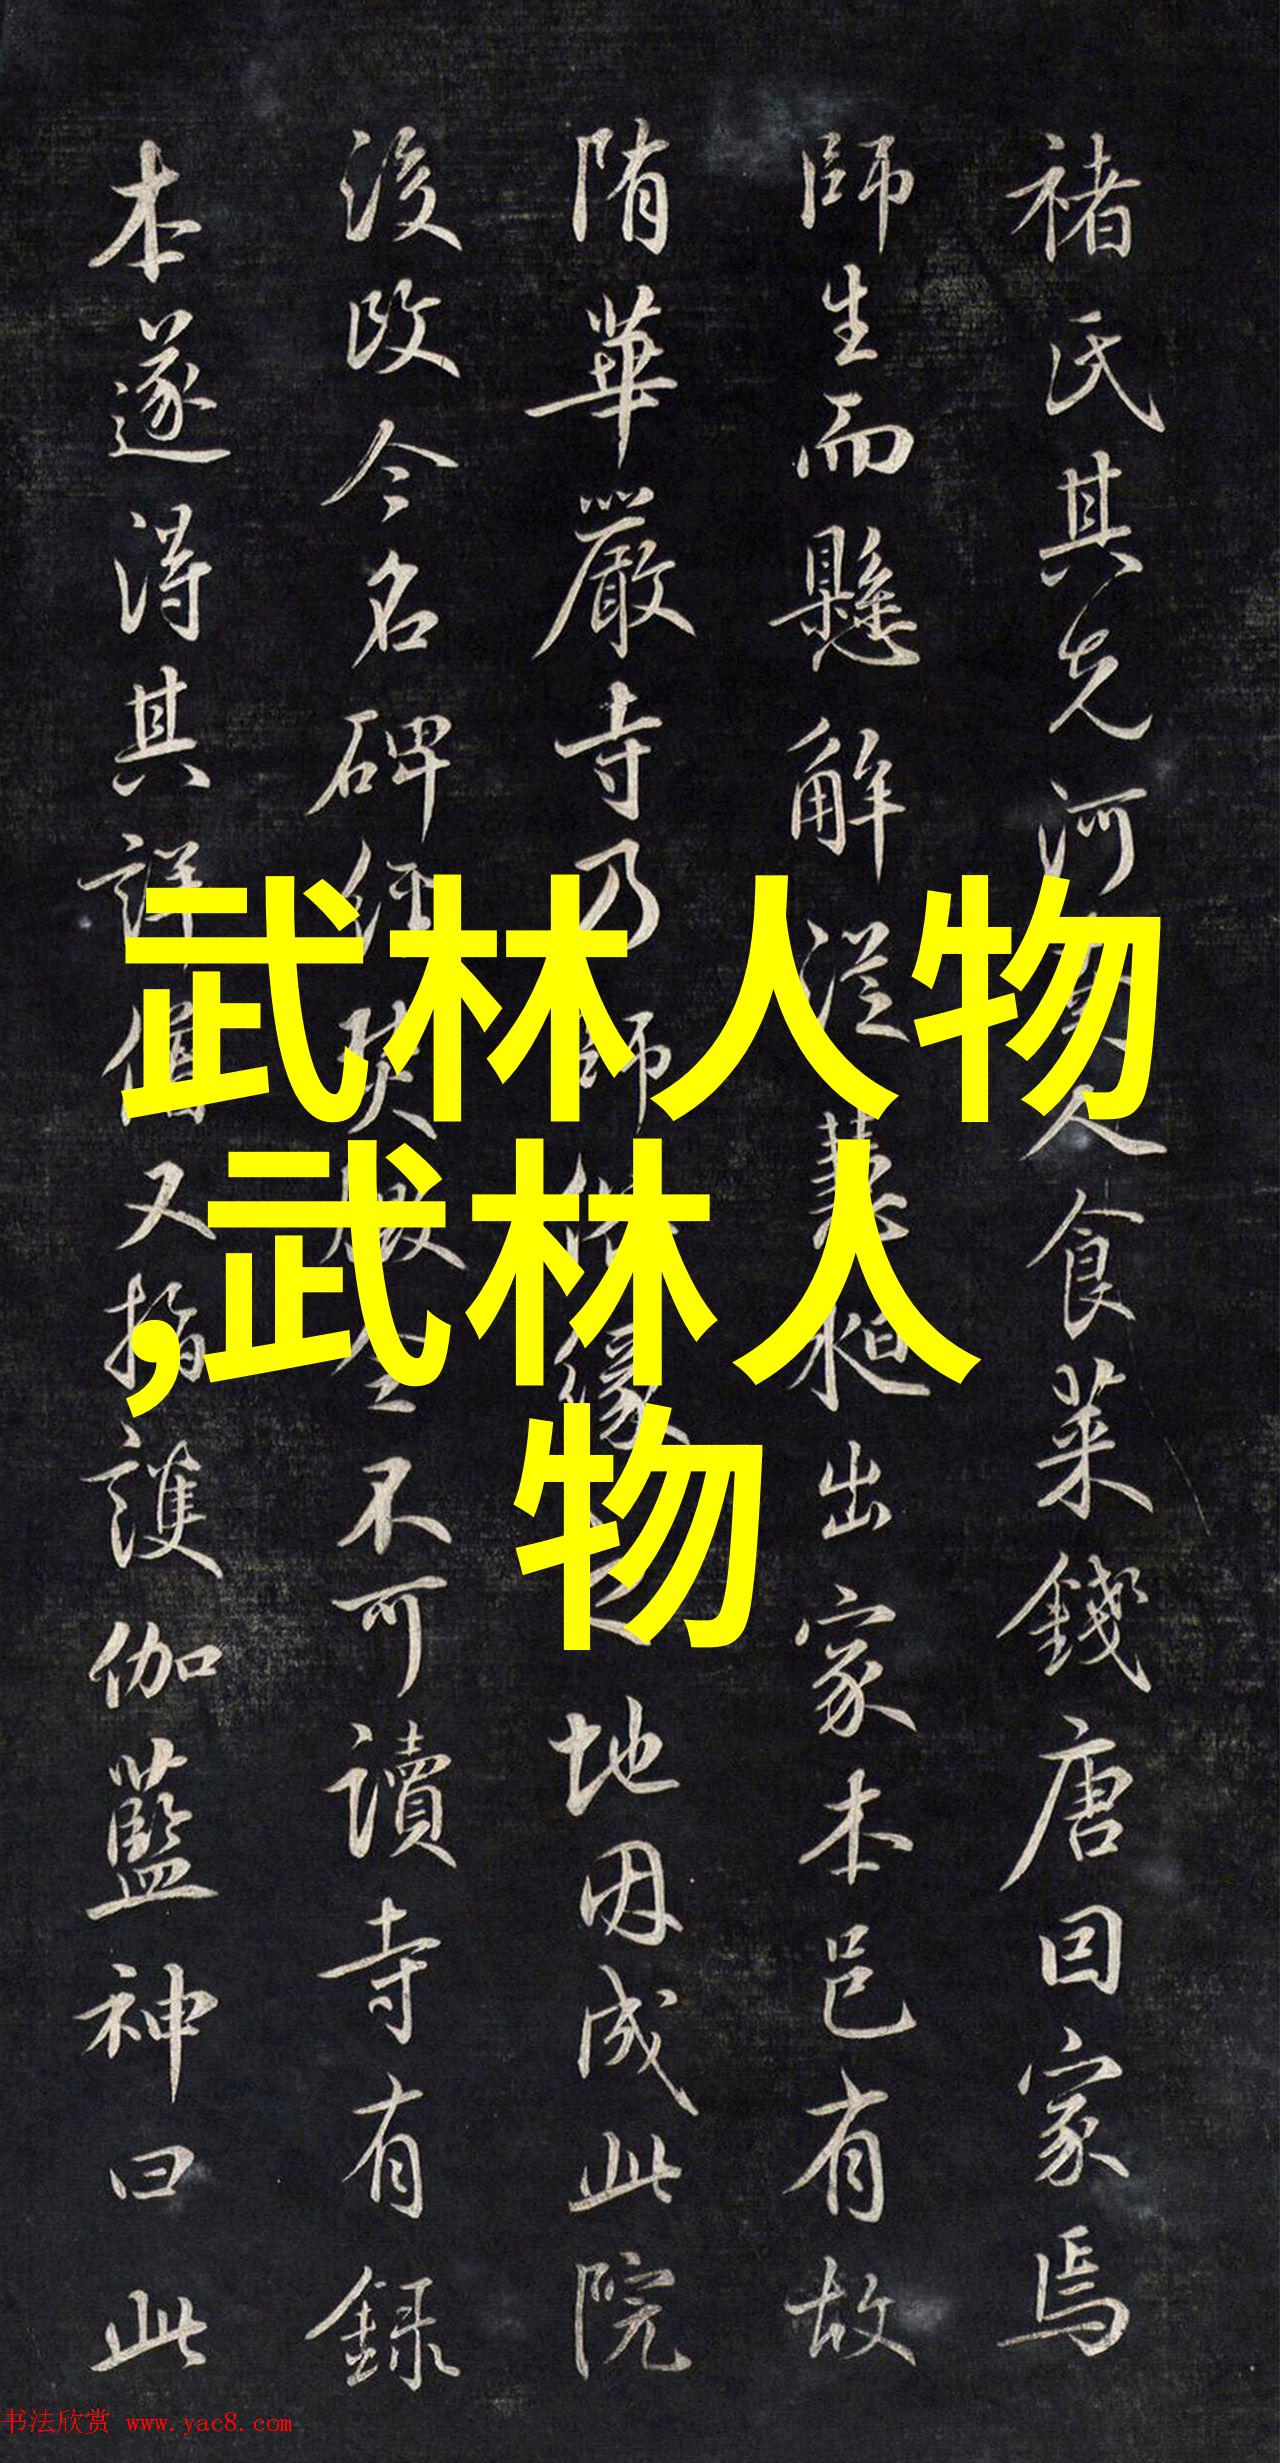 武林人物
,武林人
物
褚氏其先河南人食菜錢唐回家焉
師生而懸解從慧昶出家本邑有故
隋華嚴寺乃師俗緣之地因成此院
後改今名碑經廢今不可讀寺有録
本遂得其詳僧又指護伽藍神曰此
书法欣赏 www.yac8.com